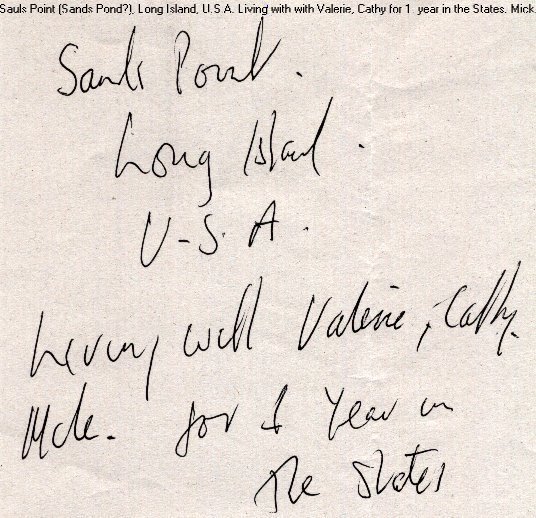 Sauls Point (Sands Pond?), Long Island, U.S.A. Living with with Valerie, Cathy for 1 year in the States. Mick.
Sands Point.
Long Island.
U-S.A.
Living with Valerie, Cathy,
for 1 Year in
the States